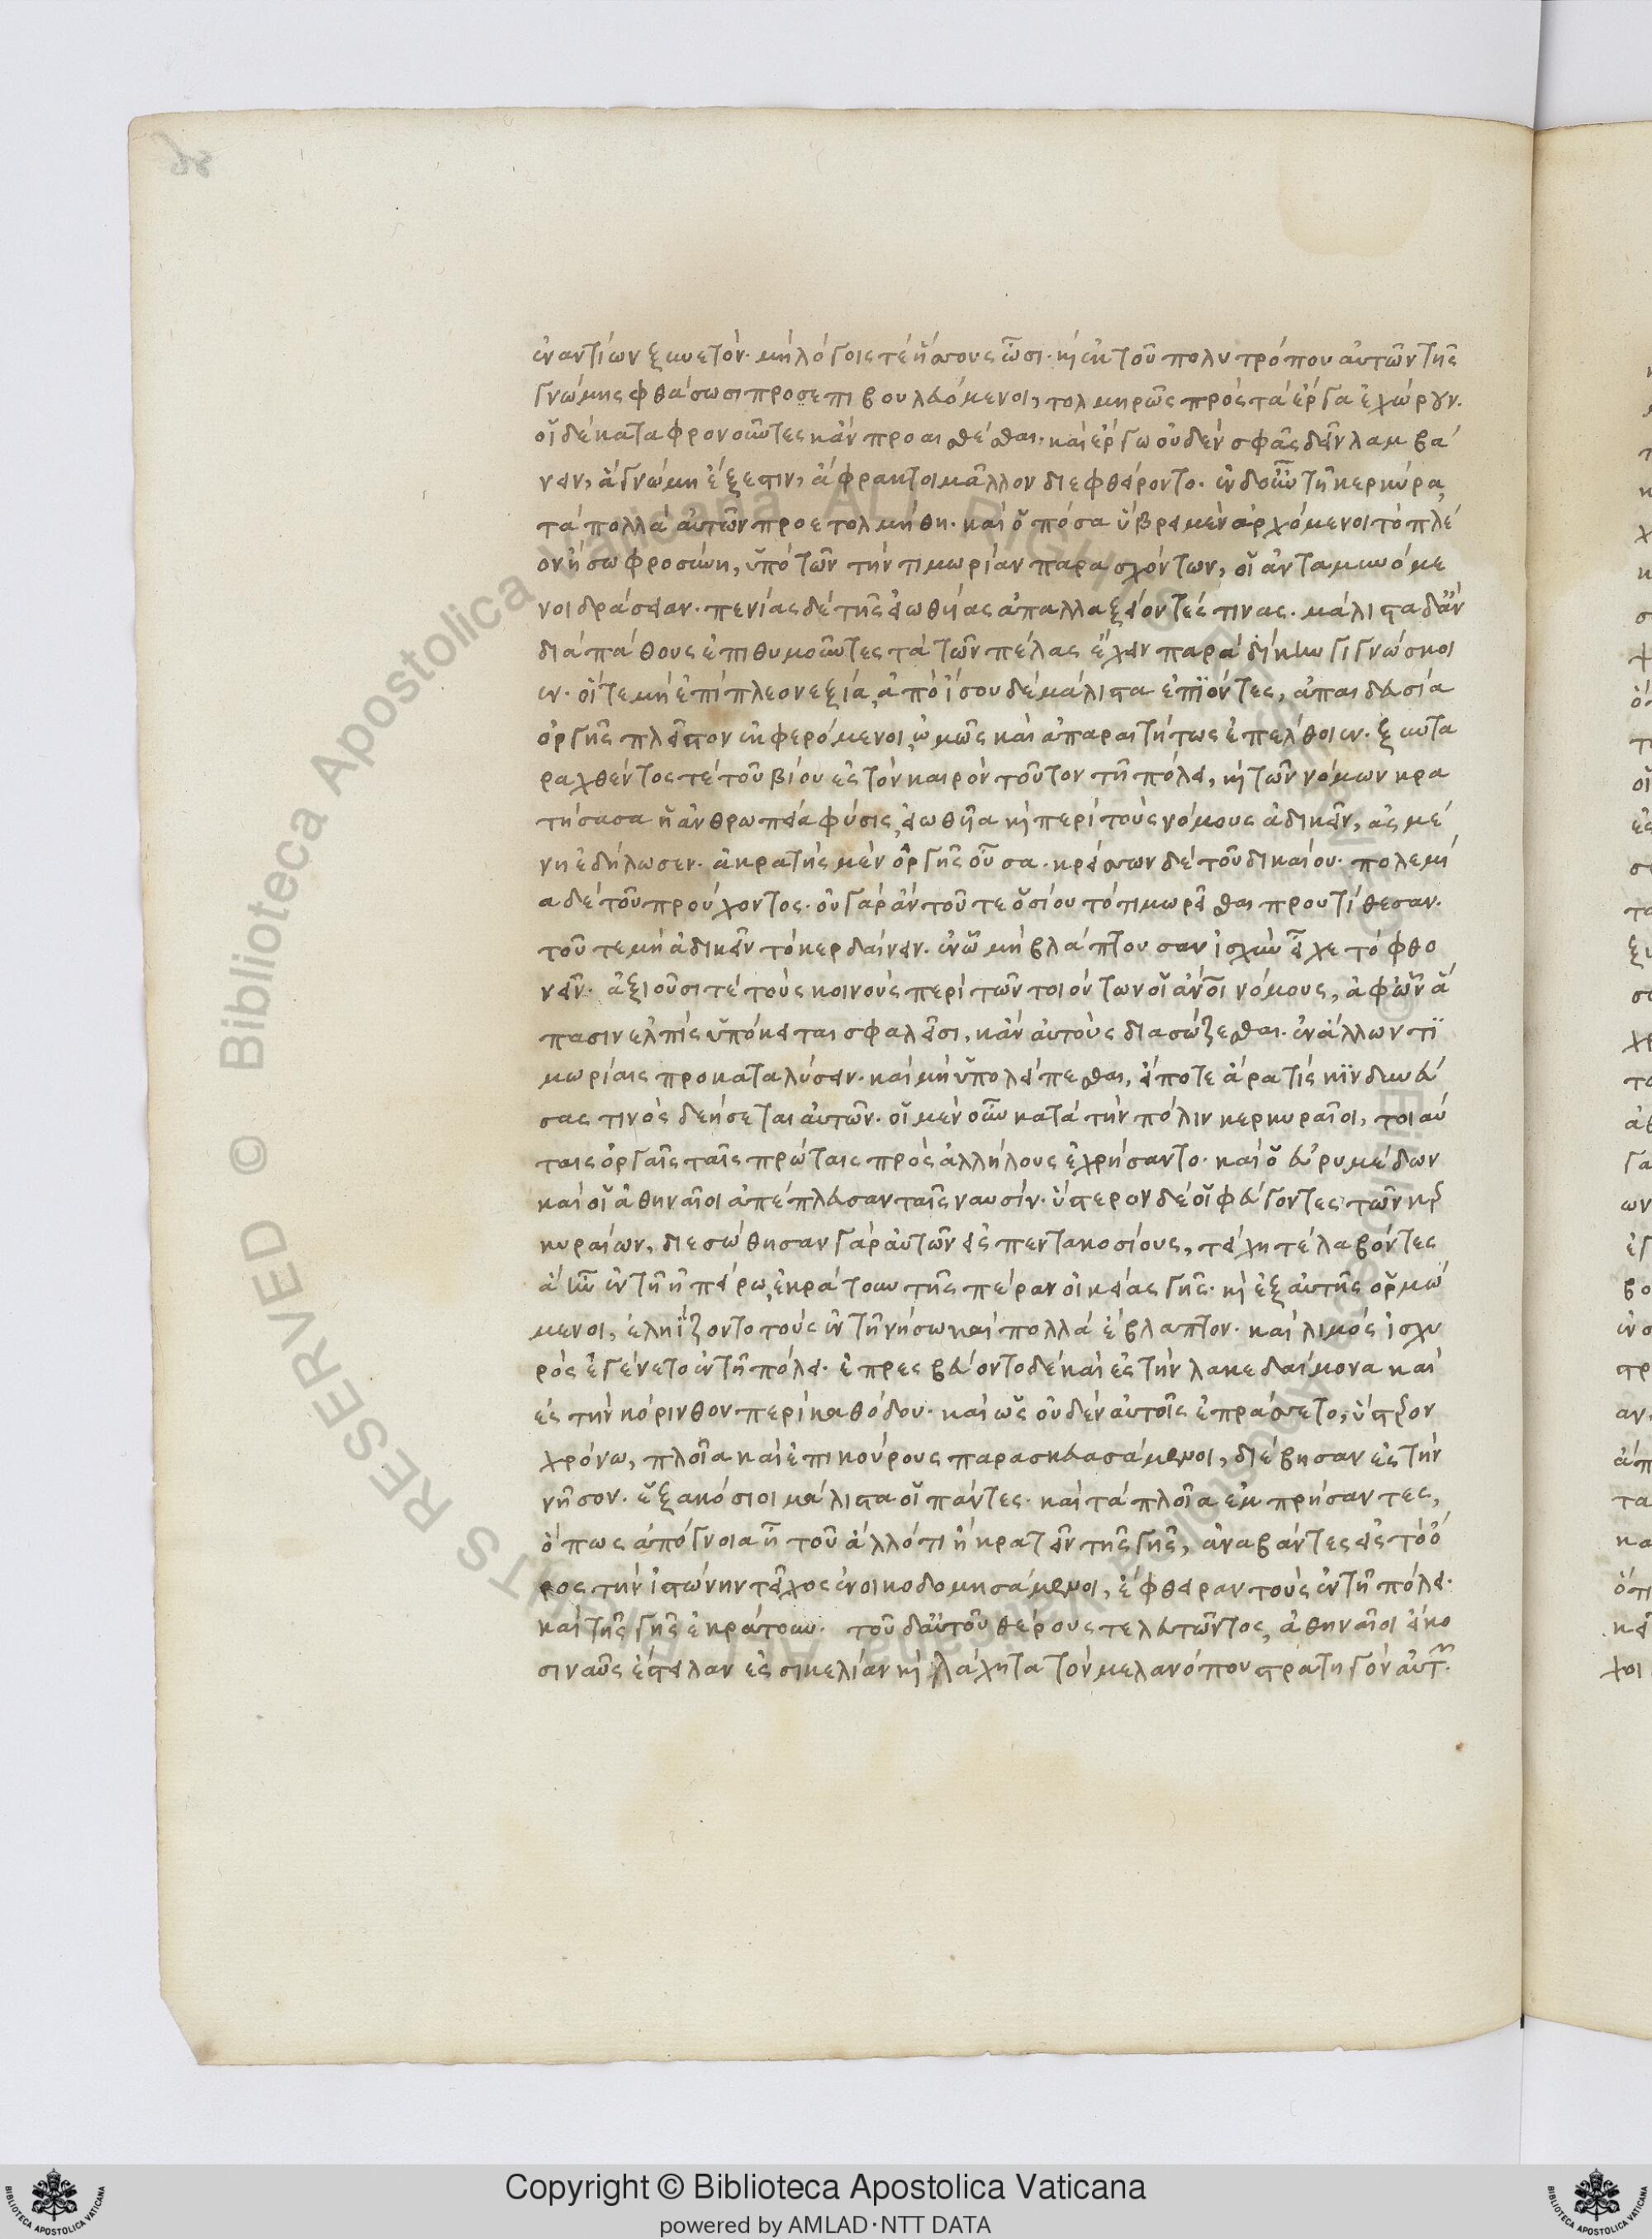 ἐναντίων ξυνετὸν· μὴ λόγοις τὲ ἥσσους ὦσι· κὴ ἐκ τοῦ πολυτρόπου αὐτῶν τῆς
γνώμης φθάσωσι προσεπιβουλευόμενοι, τολμηρῶς πρὸς τὰ ἔργα ἐχώρουν.
οἱ δὲ καταφρονοῦντες κἂν προαισθέσθαι· καὶ ἔργω οὐδὲν σφᾶς δεῖν λαμβά
νειν, ἃ γνώμη ἔξεστιν, ἄφρακτοι μᾶλλον διεφθείροντο· ἐν δοῦν τῆ κερκύρα
τὰ πολλὰ αὐτῶν προετολμήθη· καὶ ὁπόσα ὕβρει μὲν ἀρχόμενοι τὸ πλέ
ον ἢ σωφροσύνη, ὑπὸ τῶν τὴν τιμωρίαν παρασχόντων, οἱ ἀνταμυνόμε
νοι δράσειαν· πενίας δὲ τῆς εἰωθυίας ἀπαλλαξείοντές τινας· μάλιστα δἂν
διὰ πάθους ἐπιθυμοῦντες τὰ τῶν πέλας ἔχειν παρὰ δίκην γιγνώσκοι
εν· οἵ τε μὴ ἐπὶ πλεονεξία, ἀπὸ ἴσου δὲ μάλιστα ἐπϊόντες, ἀπαιδευσία
ὀργῆς πλεῖστον ἐκφερόμενοι, ὠμῶς καὶ ἀπαραιτήτως ἐπέλθοιεν· ξυντα
ραχθέντος τὲ τοῦ βίου ἐς τὸν καιρὸν τοῦτον τῆ πόλει, κὴ τῶν νόμων κρα
τήσασα ἡ ἀνθρωπεία φύσις, εἰωθυῖα κὴ περὶ τοὺς νόμους ἀδικεῖν, ἀσμέ
νη ἐδήλωσεν· ἀκρατὴς μὲν ὀργῆς οὖσα· κρείσσων δὲ τοῦ δικαίου· πολεμί
α δὲ τοῦ προύχοντος· οὐ γὰρ ἂν τοῦ τε ὁσίου τὸ τιμωρεῖσθαι προυτίθεσαν·
τοῦ τε μὴ ἀδικεῖν τὸ κερδαίνειν· ἐν ὧ μὴ βλάπτουσαν ἰσχὺν εἶχε τὸ φθο
νεῖν· ἀξιοῦσι τὲ τοὺς κοινοὺς περὶ τῶν τοιούτων οἱ ἄνοι νόμους, ἀφ' ὧν ἅ
πασιν ἐλπὶς ὑπόκειται σφαλεῖσι, κἂν αὐτοὺς διασώζεσθαι· ἐν ἄλλων τϊ
μωρίαις προκαταλύσειν· καὶ μὴ ὑπολείπεσθαι, εἴποτε ἄρα τὶς κϊνδυνεύ
σας τινὸς δεήσεται αὐτῶν· οἱ μὲν οὖν κατὰ τὴν πόλιν κερκυραῖοι, τοιαύ
ταις ὀργαῖς ταῖς πρώταις πρὸς ἀλλήλους ἐχρήσαντο· καὶ ὁ εὐρυμέδων
καὶ οἱ ἀθηναῖοι ἀπέπλευσαν ταῖς ναυσίν· ὕστερον δὲ οἱ φεύγοντες τῶν κερ
κυραίων, διεσώθησαν γὰρ αὐτῶν εἰς πεντακοσίους, τείχη τὲ λαβόντες
ἃ ἦν ἐν τῆ ἠπείρω, ἐκράτουν τῆς πέραν οἰκείας γῆς· κὴ ἐξ αὐτῆς ὁρμώ
μενοι, ἐληΐζοντο τοὺς ἐν τῆ νήσω καὶ πολλὰ ἔβλαπτον· καὶ λιμὸς ἰσχυ
ρὸς ἐγένετο ἐν τῆ πόλει· ἐπρεσβεύοντο δὲ καὶ ἐς τὴν λακεδαίμονα καὶ
ἐς τὴν κόρινθον περὶ καθόδου· καὶ ὡς οὐδὲν αὐτοῖς ἐπράσσετο, ὕστερον
χρόνω, πλοῖα καὶ ἐπικούρους παρασκευασάμενοι, διέβησαν ἐς τὴν
νῆσον· ἑξακόσιοι μάλιστα οἱ πάντες· καὶ τὰ πλοῖα ἐμπρήσαντες,
ὅπως ἀπόγνοια ἦ τοῦ ἄλλό τι ἢ κρατεῖν τῆς γῆς, ἀναβάντες εἰς τὸ ὄ
ρος τὴν ἱστώνην τεῖχος ἐνοικοδομησάμενοι, ἔφθειραν τοὺς ἐν τῆ πόλει·
καὶ τῆς γῆς ἐκράτουν· τοῦ δ' αὐτοῦ θέρους τελευτῶντος, ἀθηναῖοι εἴκο
σι ναῦς ἔστειλαν ἐς σικελίαν κὴ λάχητα τὸν μελανόπου στρατηγὸν αὐτῶν·